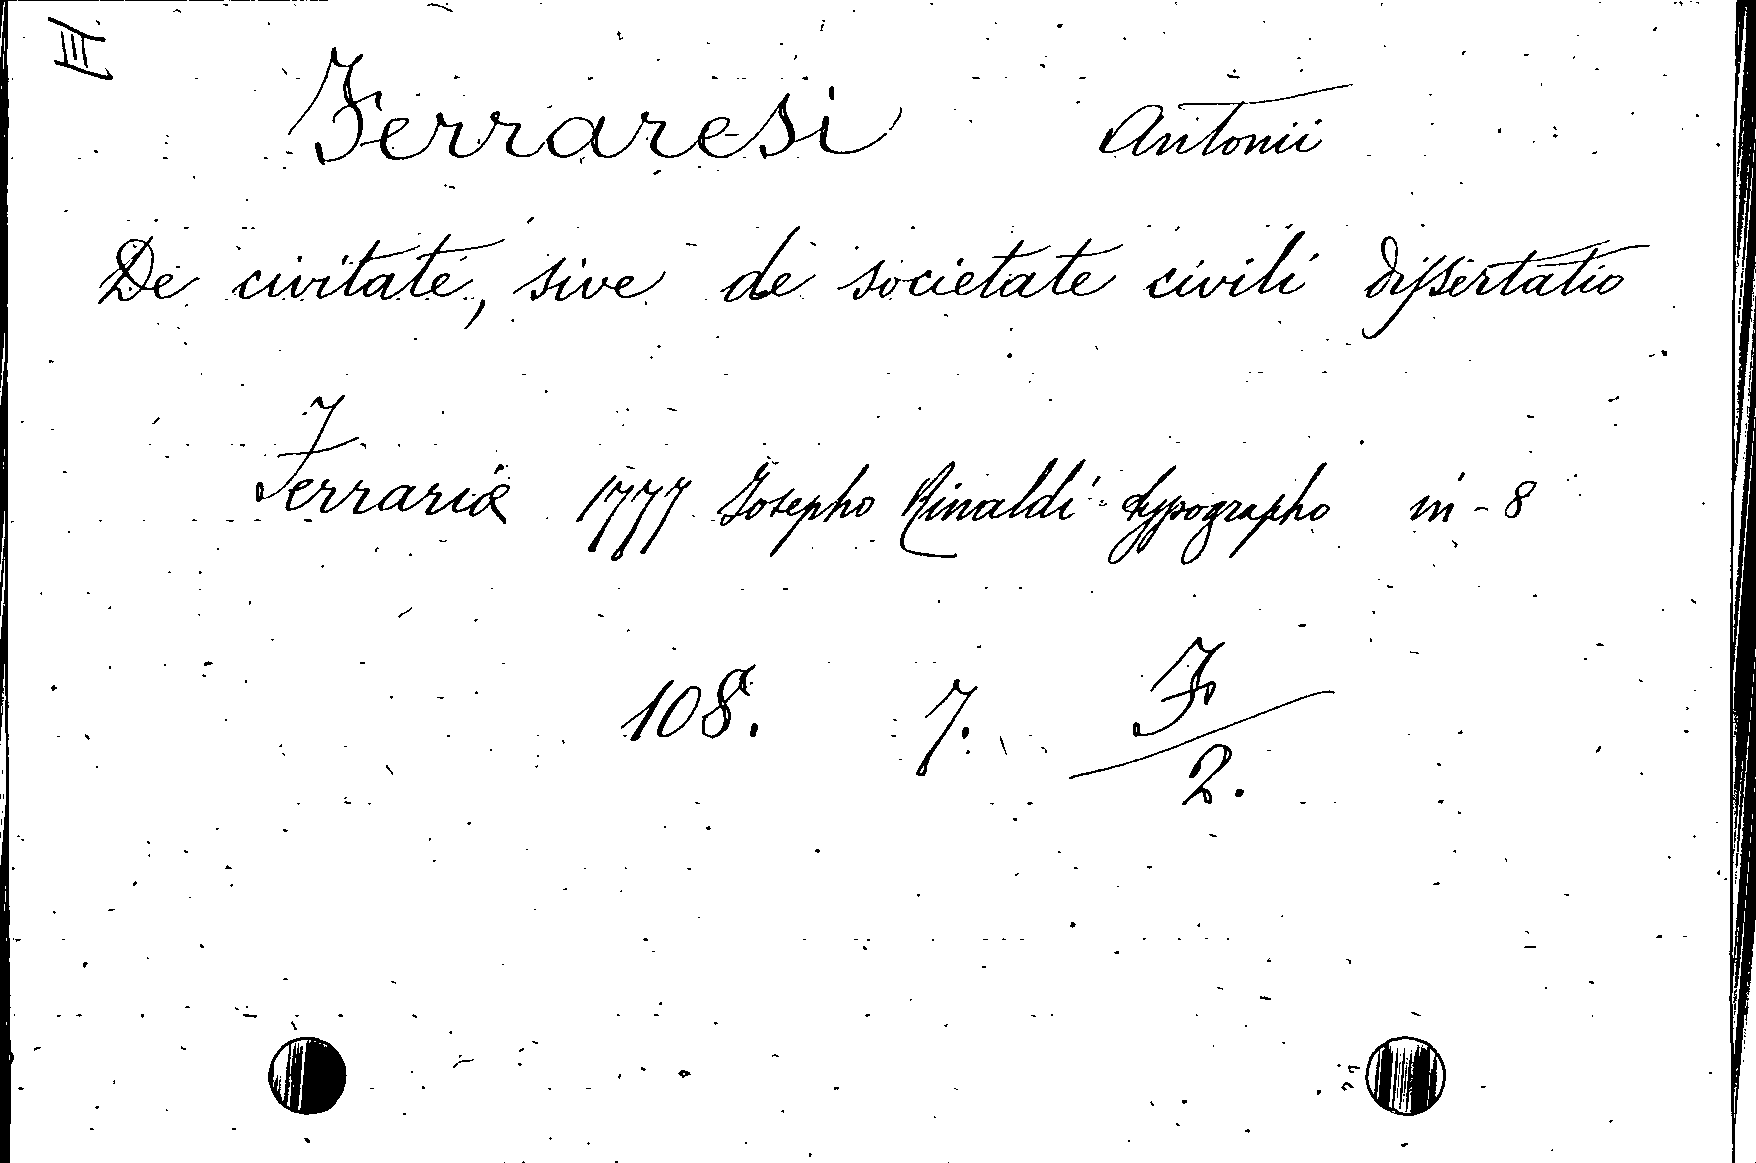 III.
Ferraresi Antonii
De civitate, sive de societate civili dissertatio
Ferrariæ 1777 Josepho Rinaldi typographo in-8
108. 7. F/2.